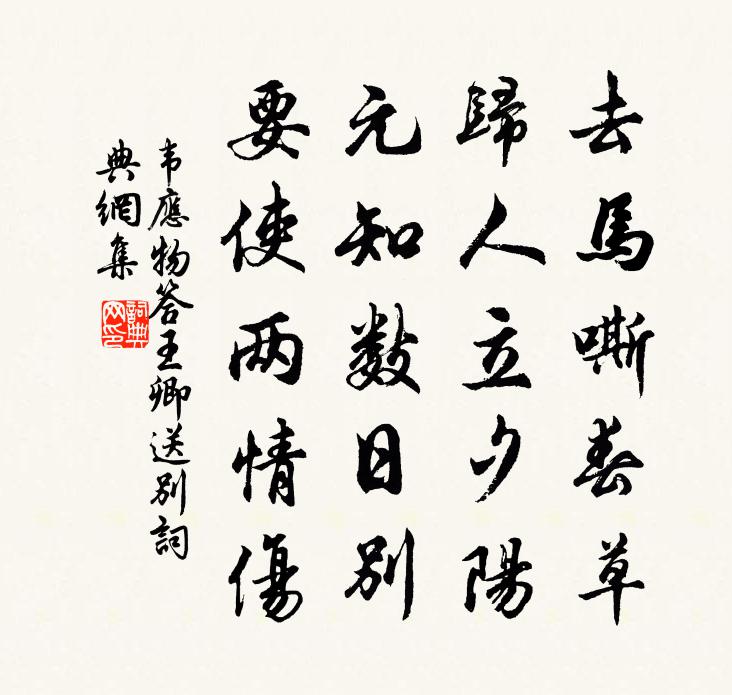 去馬嘶春草
歸人立夕陽
元知数日別
要使两情傷
韦應物答王卿送別詞
典網集
詞典
网印